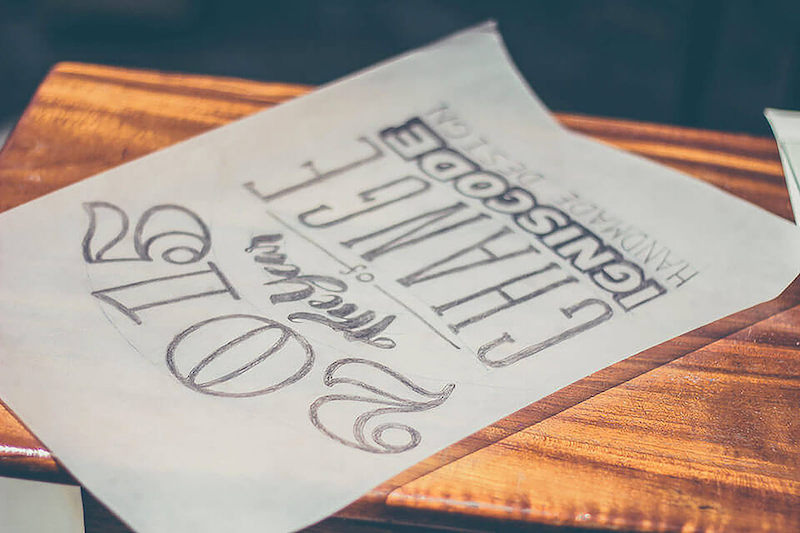 2015
The Year
of
CHANGE
IGNISCODE
HANDMADE DESIGN